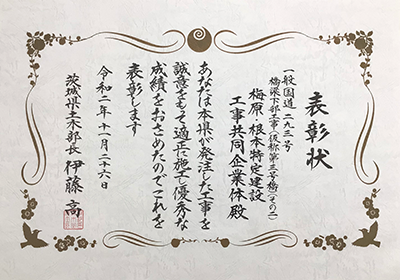 表彰状
一般国道二九三号
橋梁下部工事(仮称第三号橋)(その二)
梅原・根本特定建設
工事共同企業体殿
あなたは本県が発注した工事を
誠意をもって適正に施工し優秀な
成績をおさめたのでこれを
表彰します
令和二年十一月二十六日
茨城県土木部長 伊藤高